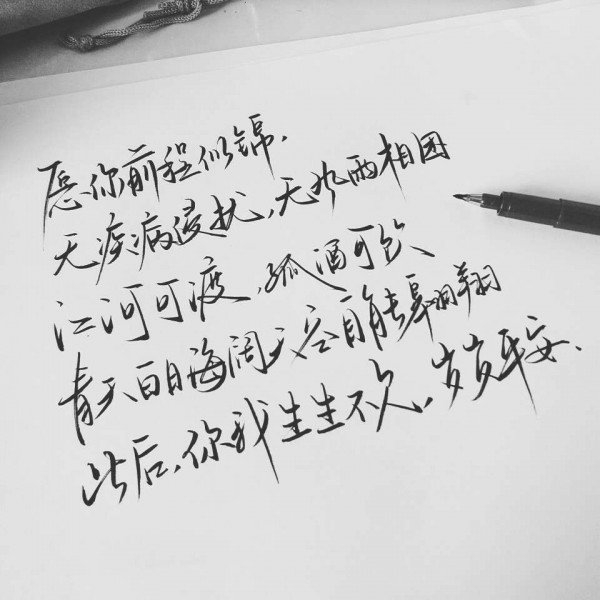 愿你前程似锦.
无疾病侵扰,无风雨相困
江河可渡,孤酒可饮
青天白日海阔天空皆能翱翔
此后,你我生生不欠,岁岁平安.